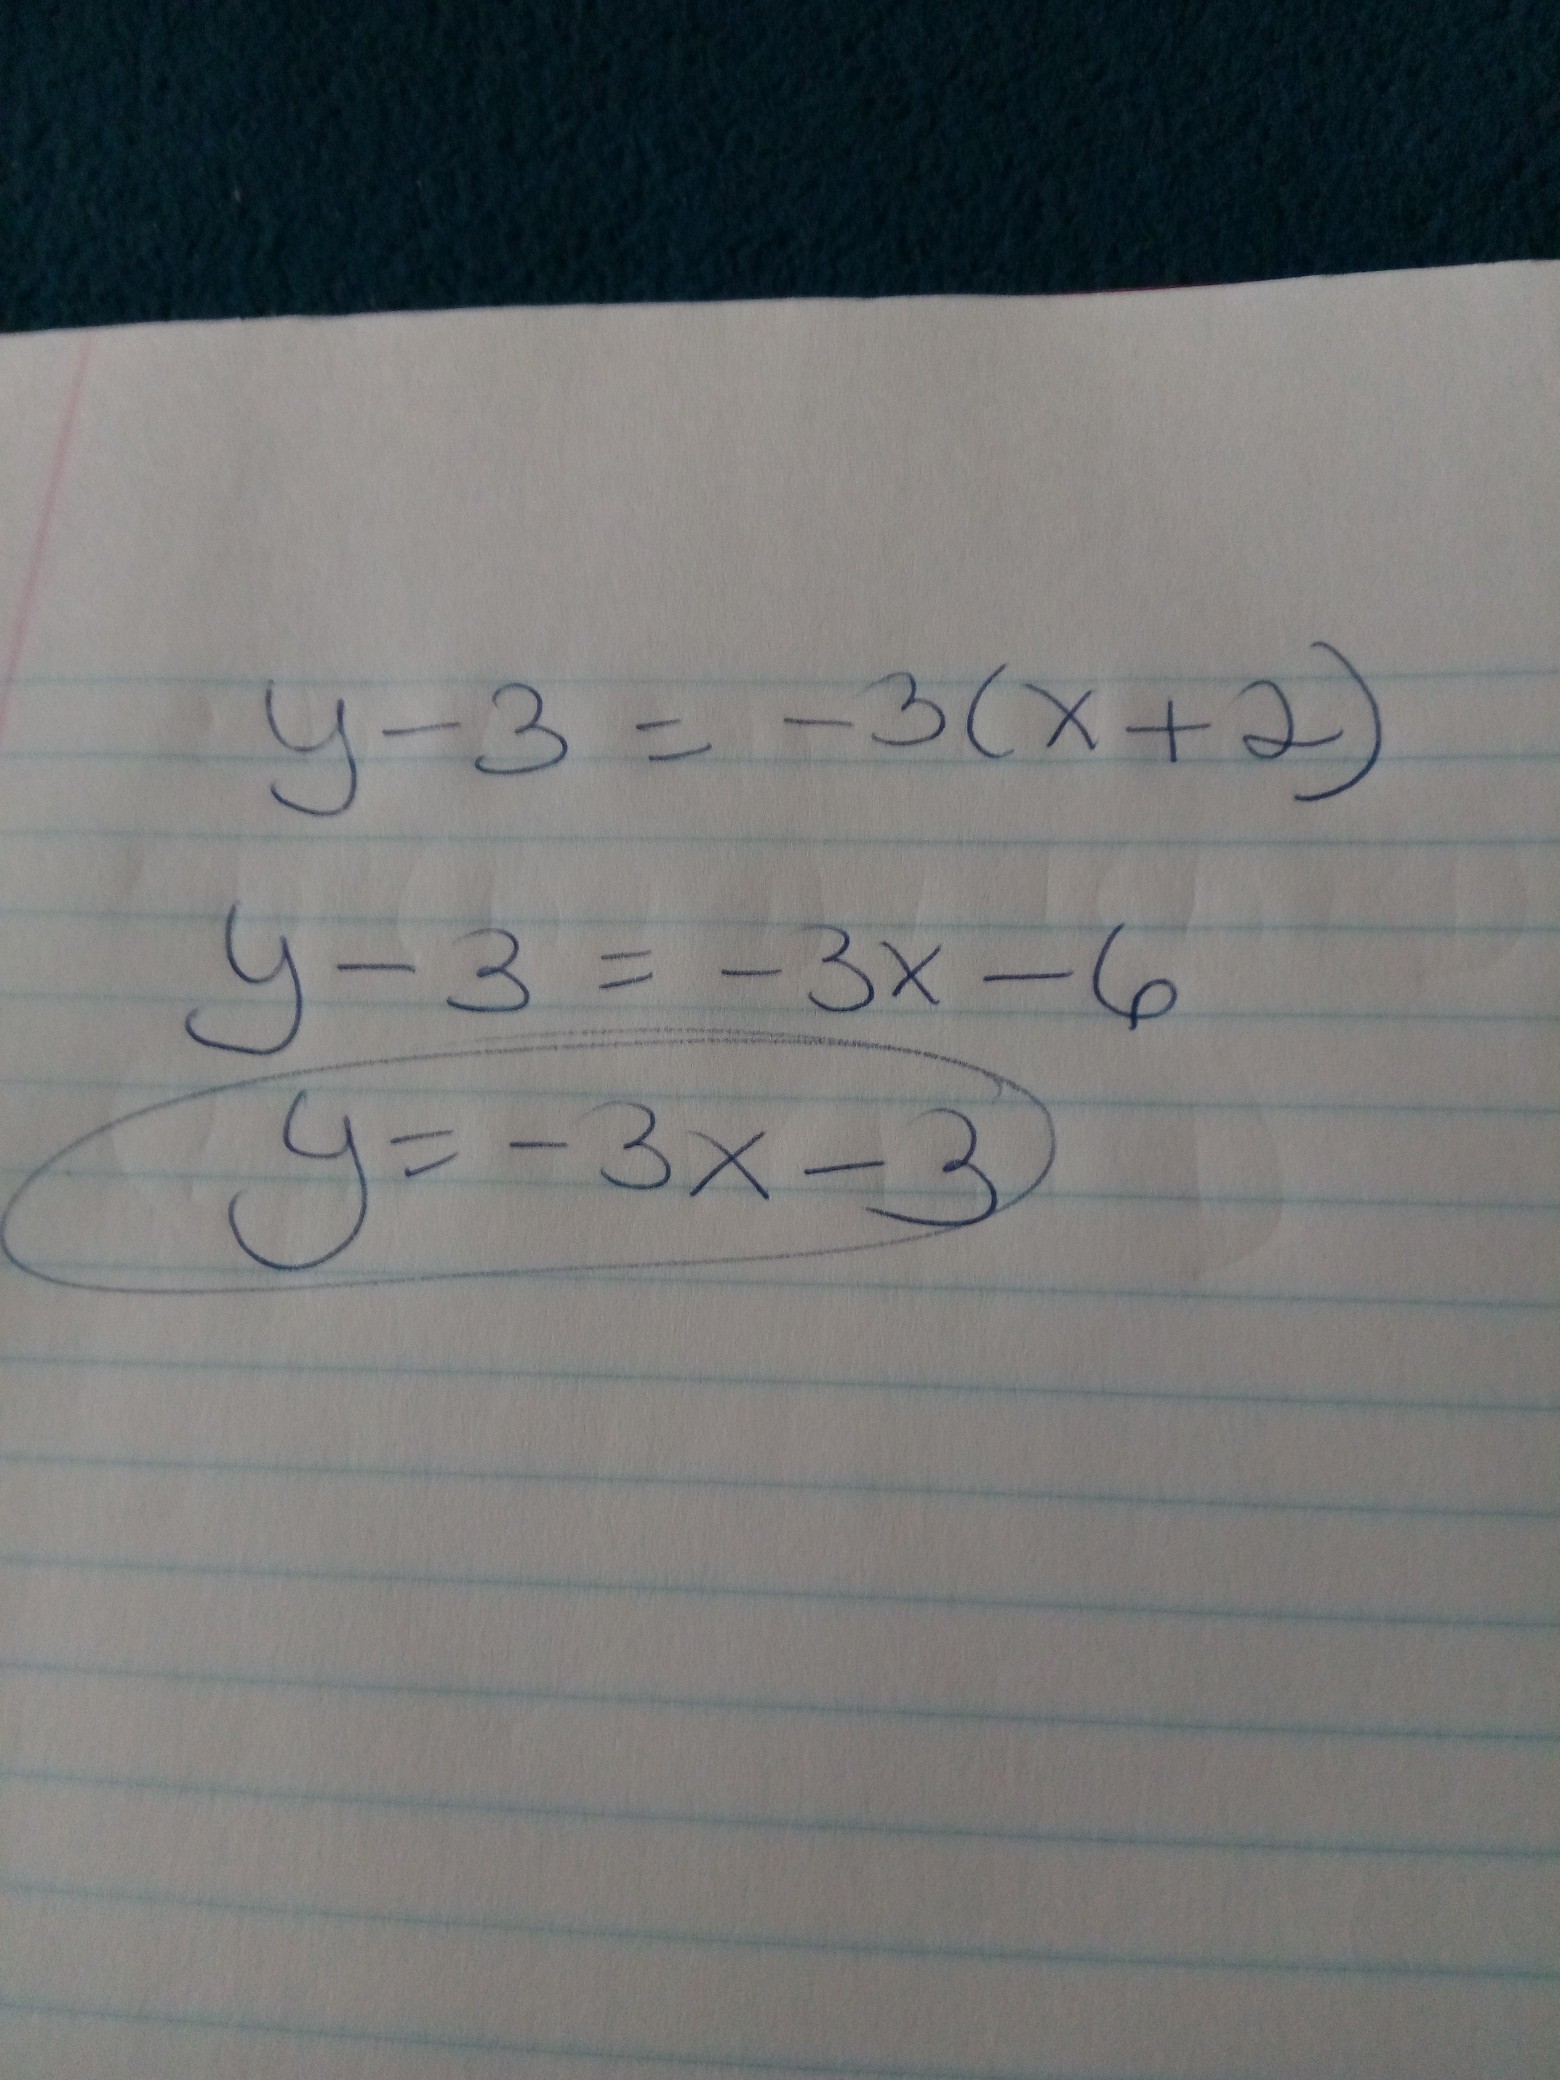 y-3 = -3(x+2)
y-3 = -3x-6
y = -3x-3